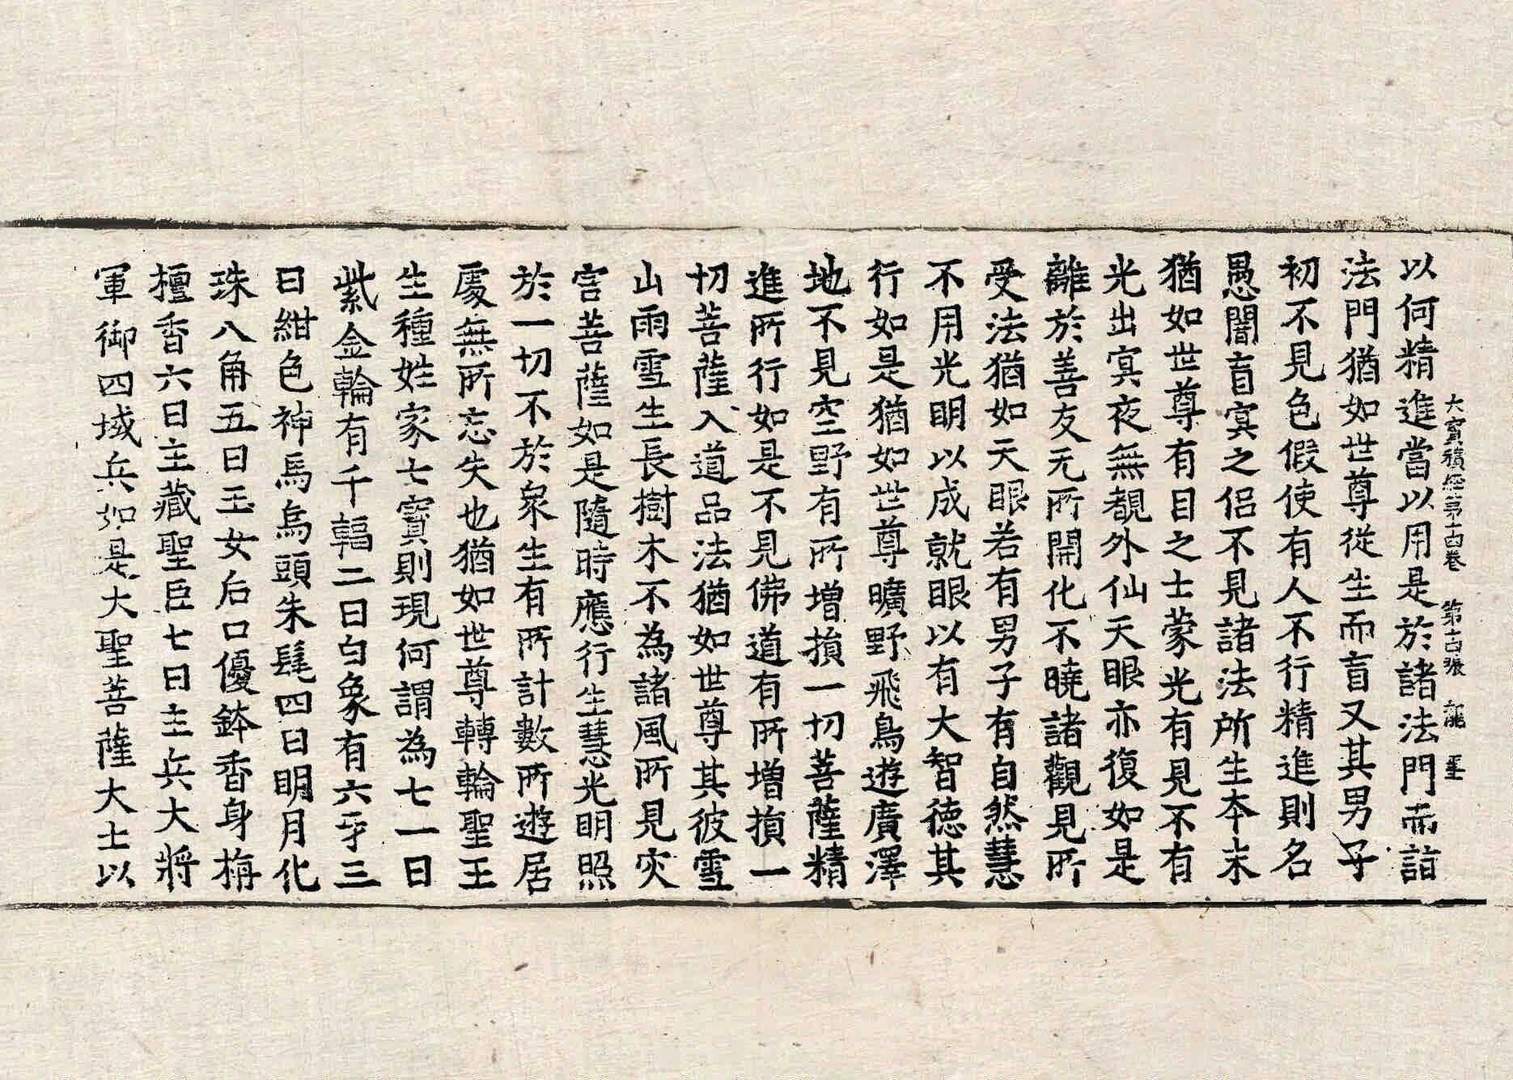 以何精進當以用是於諸法門而詣
大寶積經第十四卷 第十四張 龍
法門猶如世尊從生而盲又其男子
初不見色假使有人不行精進則名
愚闇盲冥之侶不見諸法所生本末
猶如世尊有目之士蒙光有見不有
光出冥夜無覩外仙天眼亦復如是
離於善友无所開化不曉諸觀見所
受法猶如天眼若有男子有自然慧
不用光明以成就眼以有大智德其
行如是猶如世尊曠野飛鳥遊廣澤
地不見空野有所增損一切菩薩精
進所行如是不見佛道有所增損一
切菩薩入道品法猶如世尊其彼雪
山雨雪生長樹木不為諸風所見灾
害菩薩如是隨時應行生慧光明照
於一切不於衆生有所計數所遊居
處無所忘失也猶如世尊轉輪聖王
生種姓家七寶則現何謂為七一曰
紫金輪有千輻二曰白象有六牙三
曰紺色神馬烏頭朱髦四曰明月化
珠八角五曰玉女后口優鉢香身栴
檀香六曰主藏聖臣七曰主兵大將
軍御四域兵如是大聖菩薩大士以